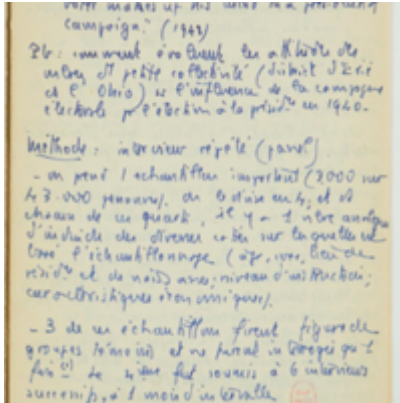 voter makes up his mind in a presidential
campaign" (1948)
Pb : comment évoluent les attitudes des
mbres d'1 petite collectivité (district d'Erié
ds l'Ohio) ss l'influence de la campagne
électorale pr l'élection à la présid. en 1940.
Méthode : interview répété (panel)
- on prend 1 échantillon important (3000 sur
43.000 personnes). on le divise en 4, et ds
chacun de ces quarts, il y a 1 nbre analogue
d'individus des diverses catég. sur lesquelles est
basé l'échantillonnage (âge, sexe, lieu de
résid. et de naissance, niveau d'instruction,
caractéristiques économiques).
- 3 de ces échantillons firent figure de
groupes témoins et ne furent interrogés qu'1
fois (1) Le 4ème fut soumis à 6 interviews
successifs, à 1 mois d'intervalle